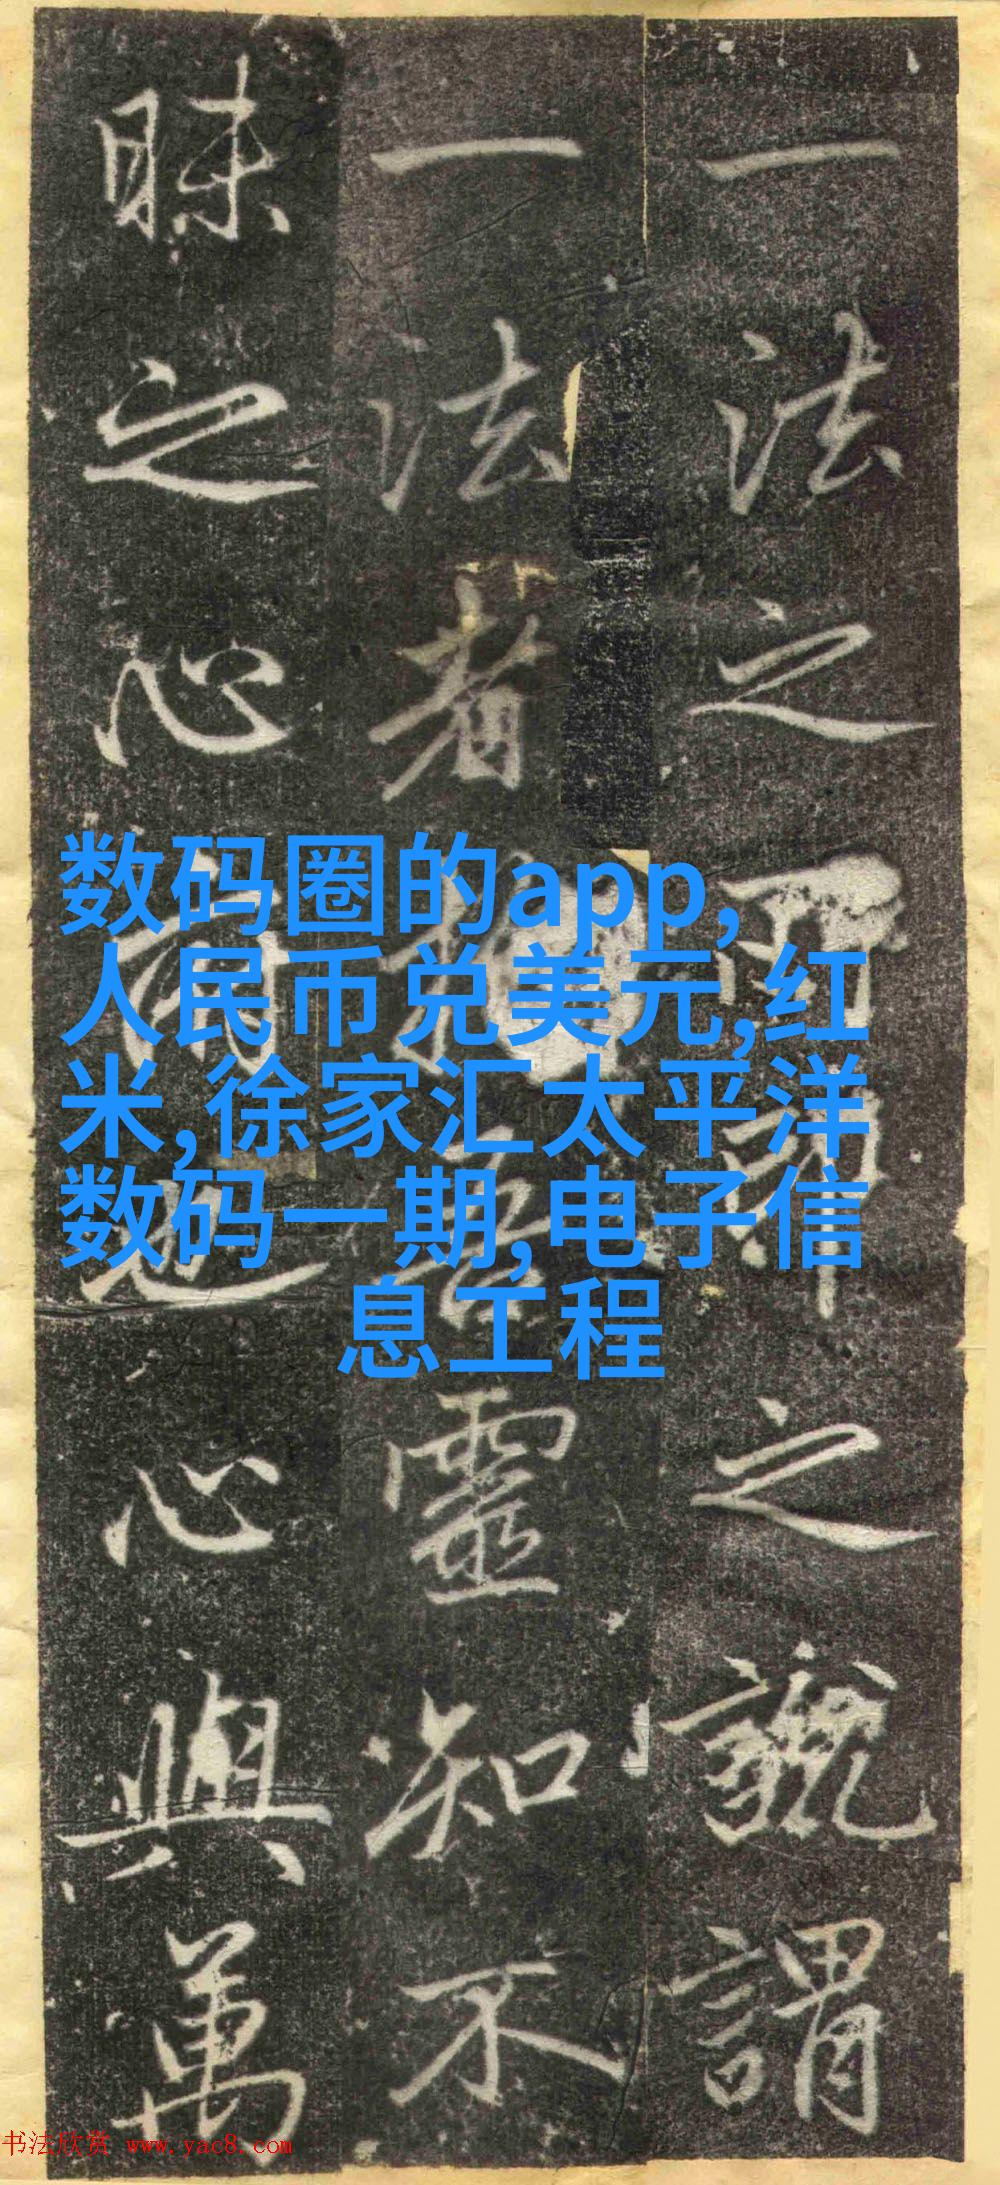 一法之之謂
一法者靈知不
昧之心也心與萬
数码圈的app,
人民币兑美元,红
米,徐家汇太平洋
数码一期,电子信
息工程
书法欣赏 www.yac8.com